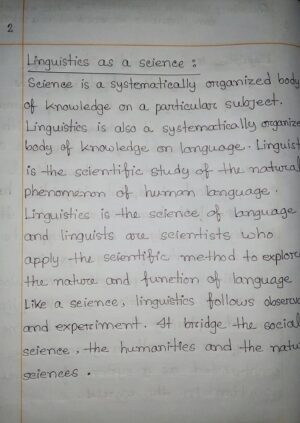 2
Linguistics as a science :
Science is a systematically organized body
of knowledge on a particular subject.
Linguistics is also a systematically organize
body of knowledge on language. Linguist
is the scientific study of the natural
phenomenon of human language.
Linguistics is the science of language
and linguists are scientists who
apply the scientific method to explore
the nature and function of language
Like a science, linguistics follows observa
and experiment. It bridge the social
science, the humanities and the natu
sciences.